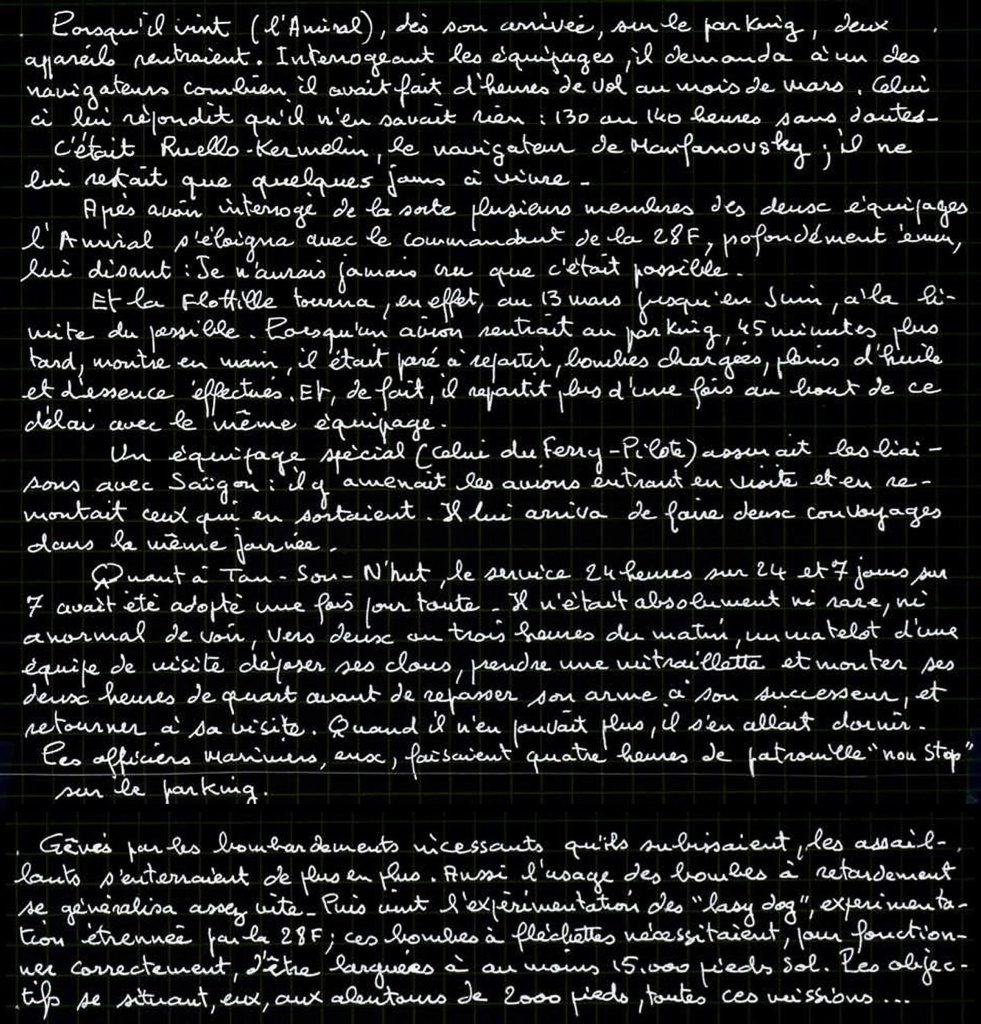 Lorsqu'il vint (l'Amiral), dès son arrivée, sur le parking, deux
appareils rentraient. Interrogeant les équipages, il demanda à un des
navigateurs combien il avait fait d'heures de vol au mois de mars. Celui
ci lui répondit qu'il n'en savait rien : 130 ou 140 heures sans doutes -
c'était Ruello-Kermelin, le navigateur de Manfanovsky ; il ne
lui restait que quelques jours à vivre -
Après avoir interrogé de la sorte plusieurs membres des deux équipages
l'Amiral s'éloigna avec le commandant de la 28F, pofondément ému,
lui disant : Je n'aurais jamais cru que c'était possible.
Et la Flottille tourna, en effet, du 13 mars jusqu'en Juin, à la li-
mite du possible. Lorsqu'un avion rentrait au parking, 45 minutes plus
tard, montre en main, il était paré à repartir, bombes chargées, pleins d'huile
et d'essence effectués. Et, de fait, il repartit plus d'une fois au bout de ce
délai avec le même équipage.
Un équipage spécial (celui du Ferry-Pilote) assurait les liai-
sons avec Saïgon : il y amenait les avions entrant en visite et en re-
montait ceux qui en sortaient. Il lui arriva de faire deux convoyages
dans la même journée.
Quant à Tan-Son-N'hut, le service 24 heures sur 24 et 7 jours sur
7 avait été adopté une fois pour toute - Il n'était absolument ni rare, ni
anormal de voir, vers deux ou trois heures du matin, un matelot d'une
équipe de visite déposer ses clous, prendre une mitraillette et monter ses
deux heures de quart avant de repasser son arme à son successeur, et
retourner à sa visite. Quand il n'en pouvait plus, il s'en allait dormir.
Les officiers mariniers, eux, faisaient quatre heures de patrouille "non stop"
sur le parking.
Gênés par les bombardements incessants qu'ils subissaient, les assail-
lants s'enterraient de plus en plus. Aussi l'usage des bombes à retardement
se généralisa assez vite - Puis vint l'expérimentation des "lasy dog", expérimenta-
tion étrennée par la 28F ; ces bombes à fléchettes nécessitaient, pour fonction-
ner correctement, d'être larguées à au moins 15.000 pieds sol. Les objec-
tifs se situant, eux, aux alentours de 2000 pieds, toutes ces missions ...